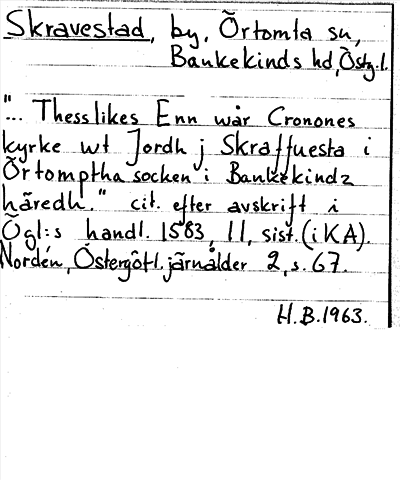 Skravestad, by, Örtomta sn,
Bankekinds hd, Östg.l.
"... Thesslikes Enn wår Cronones
kyrke wt Jordh j Skraffuesta i
Örtomptha socken i Bankekindz
häredh." cit. efter avskrift i
Ögl:s handl. 1583, 11, sist. (i KA).
Nordén, Östergötl. järnålder 2, s. 67.
H.B. 1963.